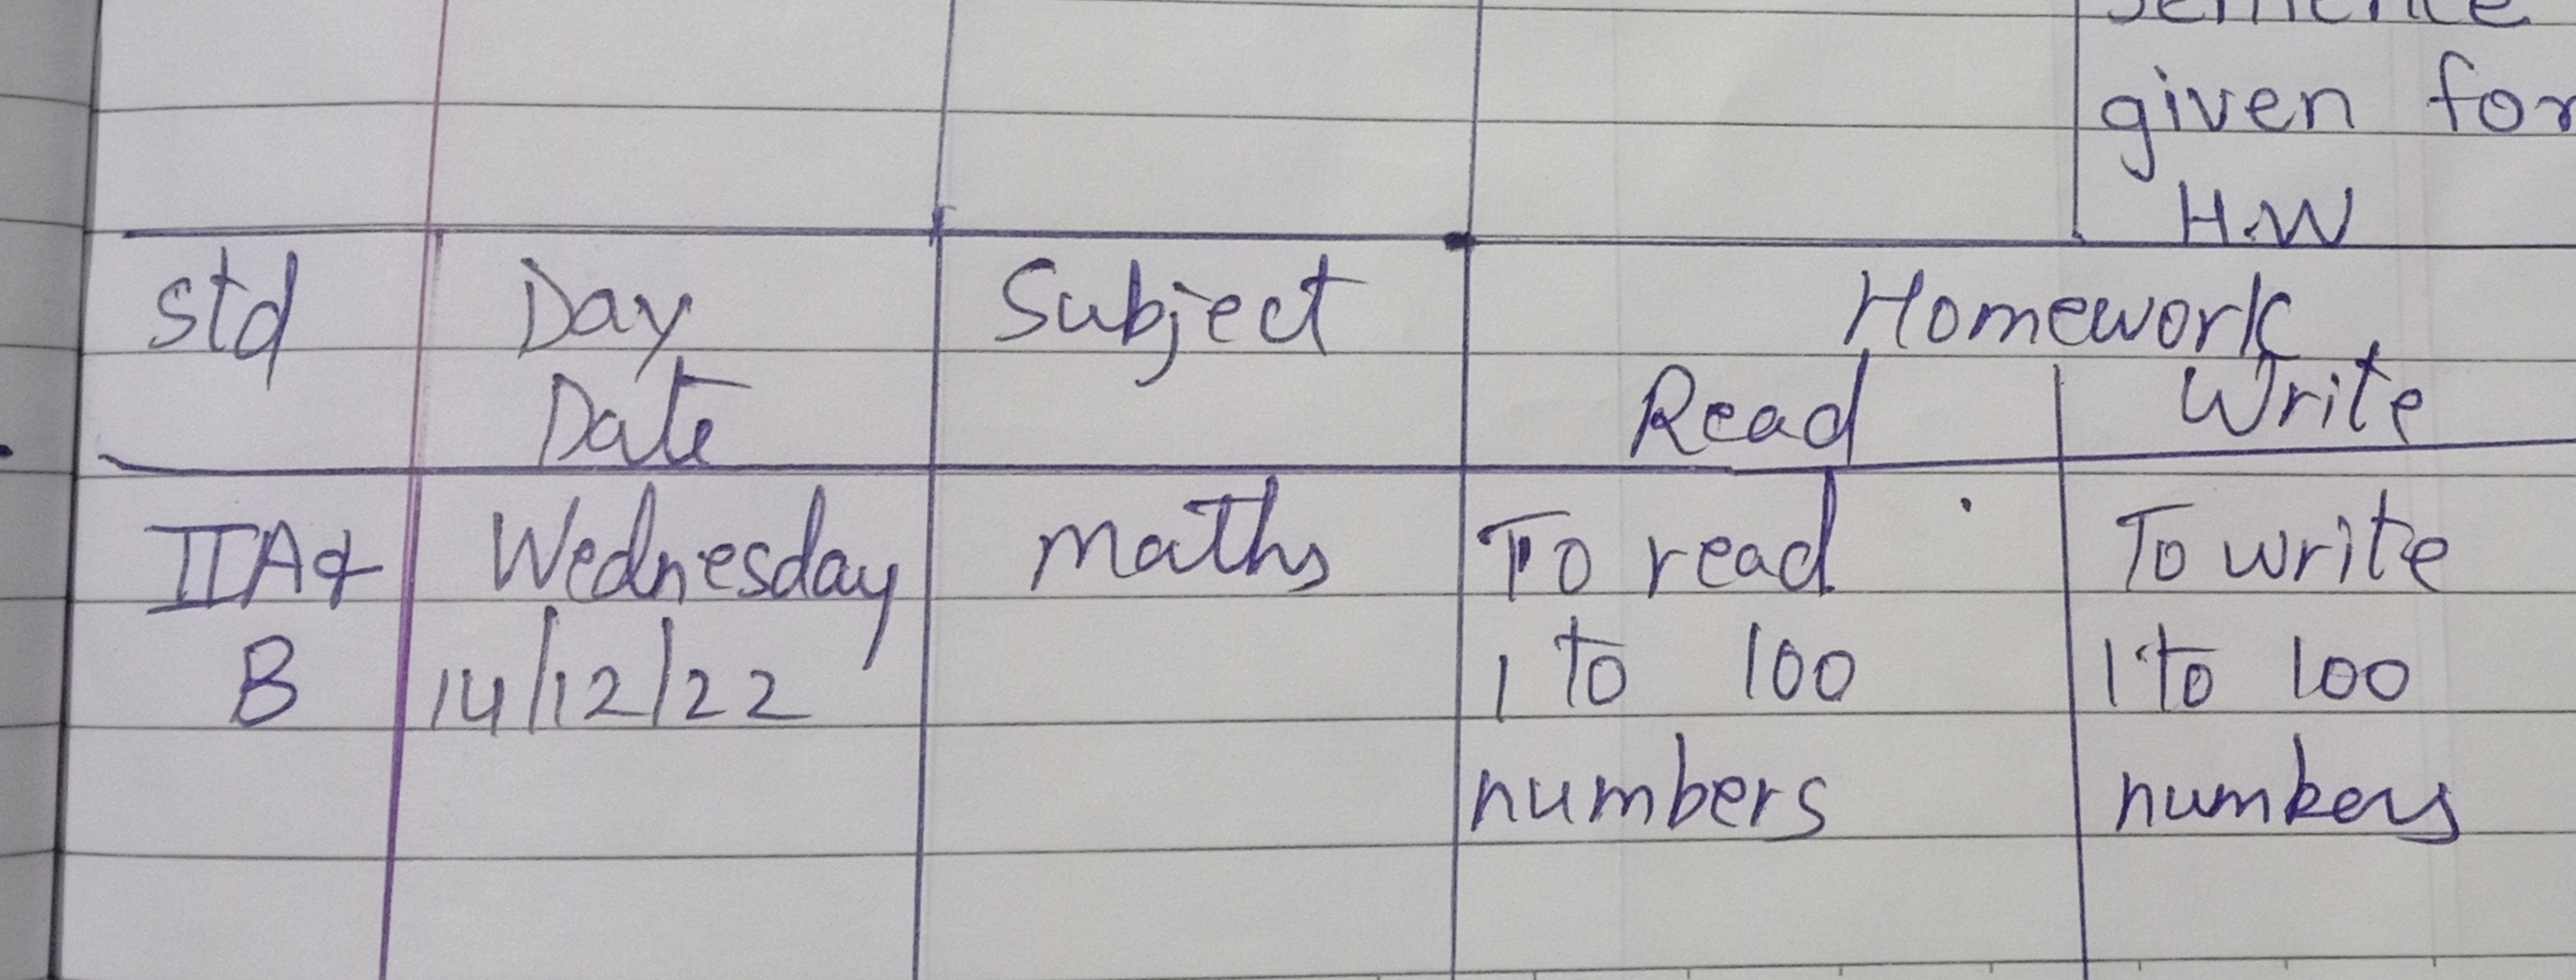 sentence
given for
H.W
Std Day Subject Homework
Date Read Write
II A & Wednesday maths To read To write
B 14/12/22 1 to 100 1 to 100
numbers numbers